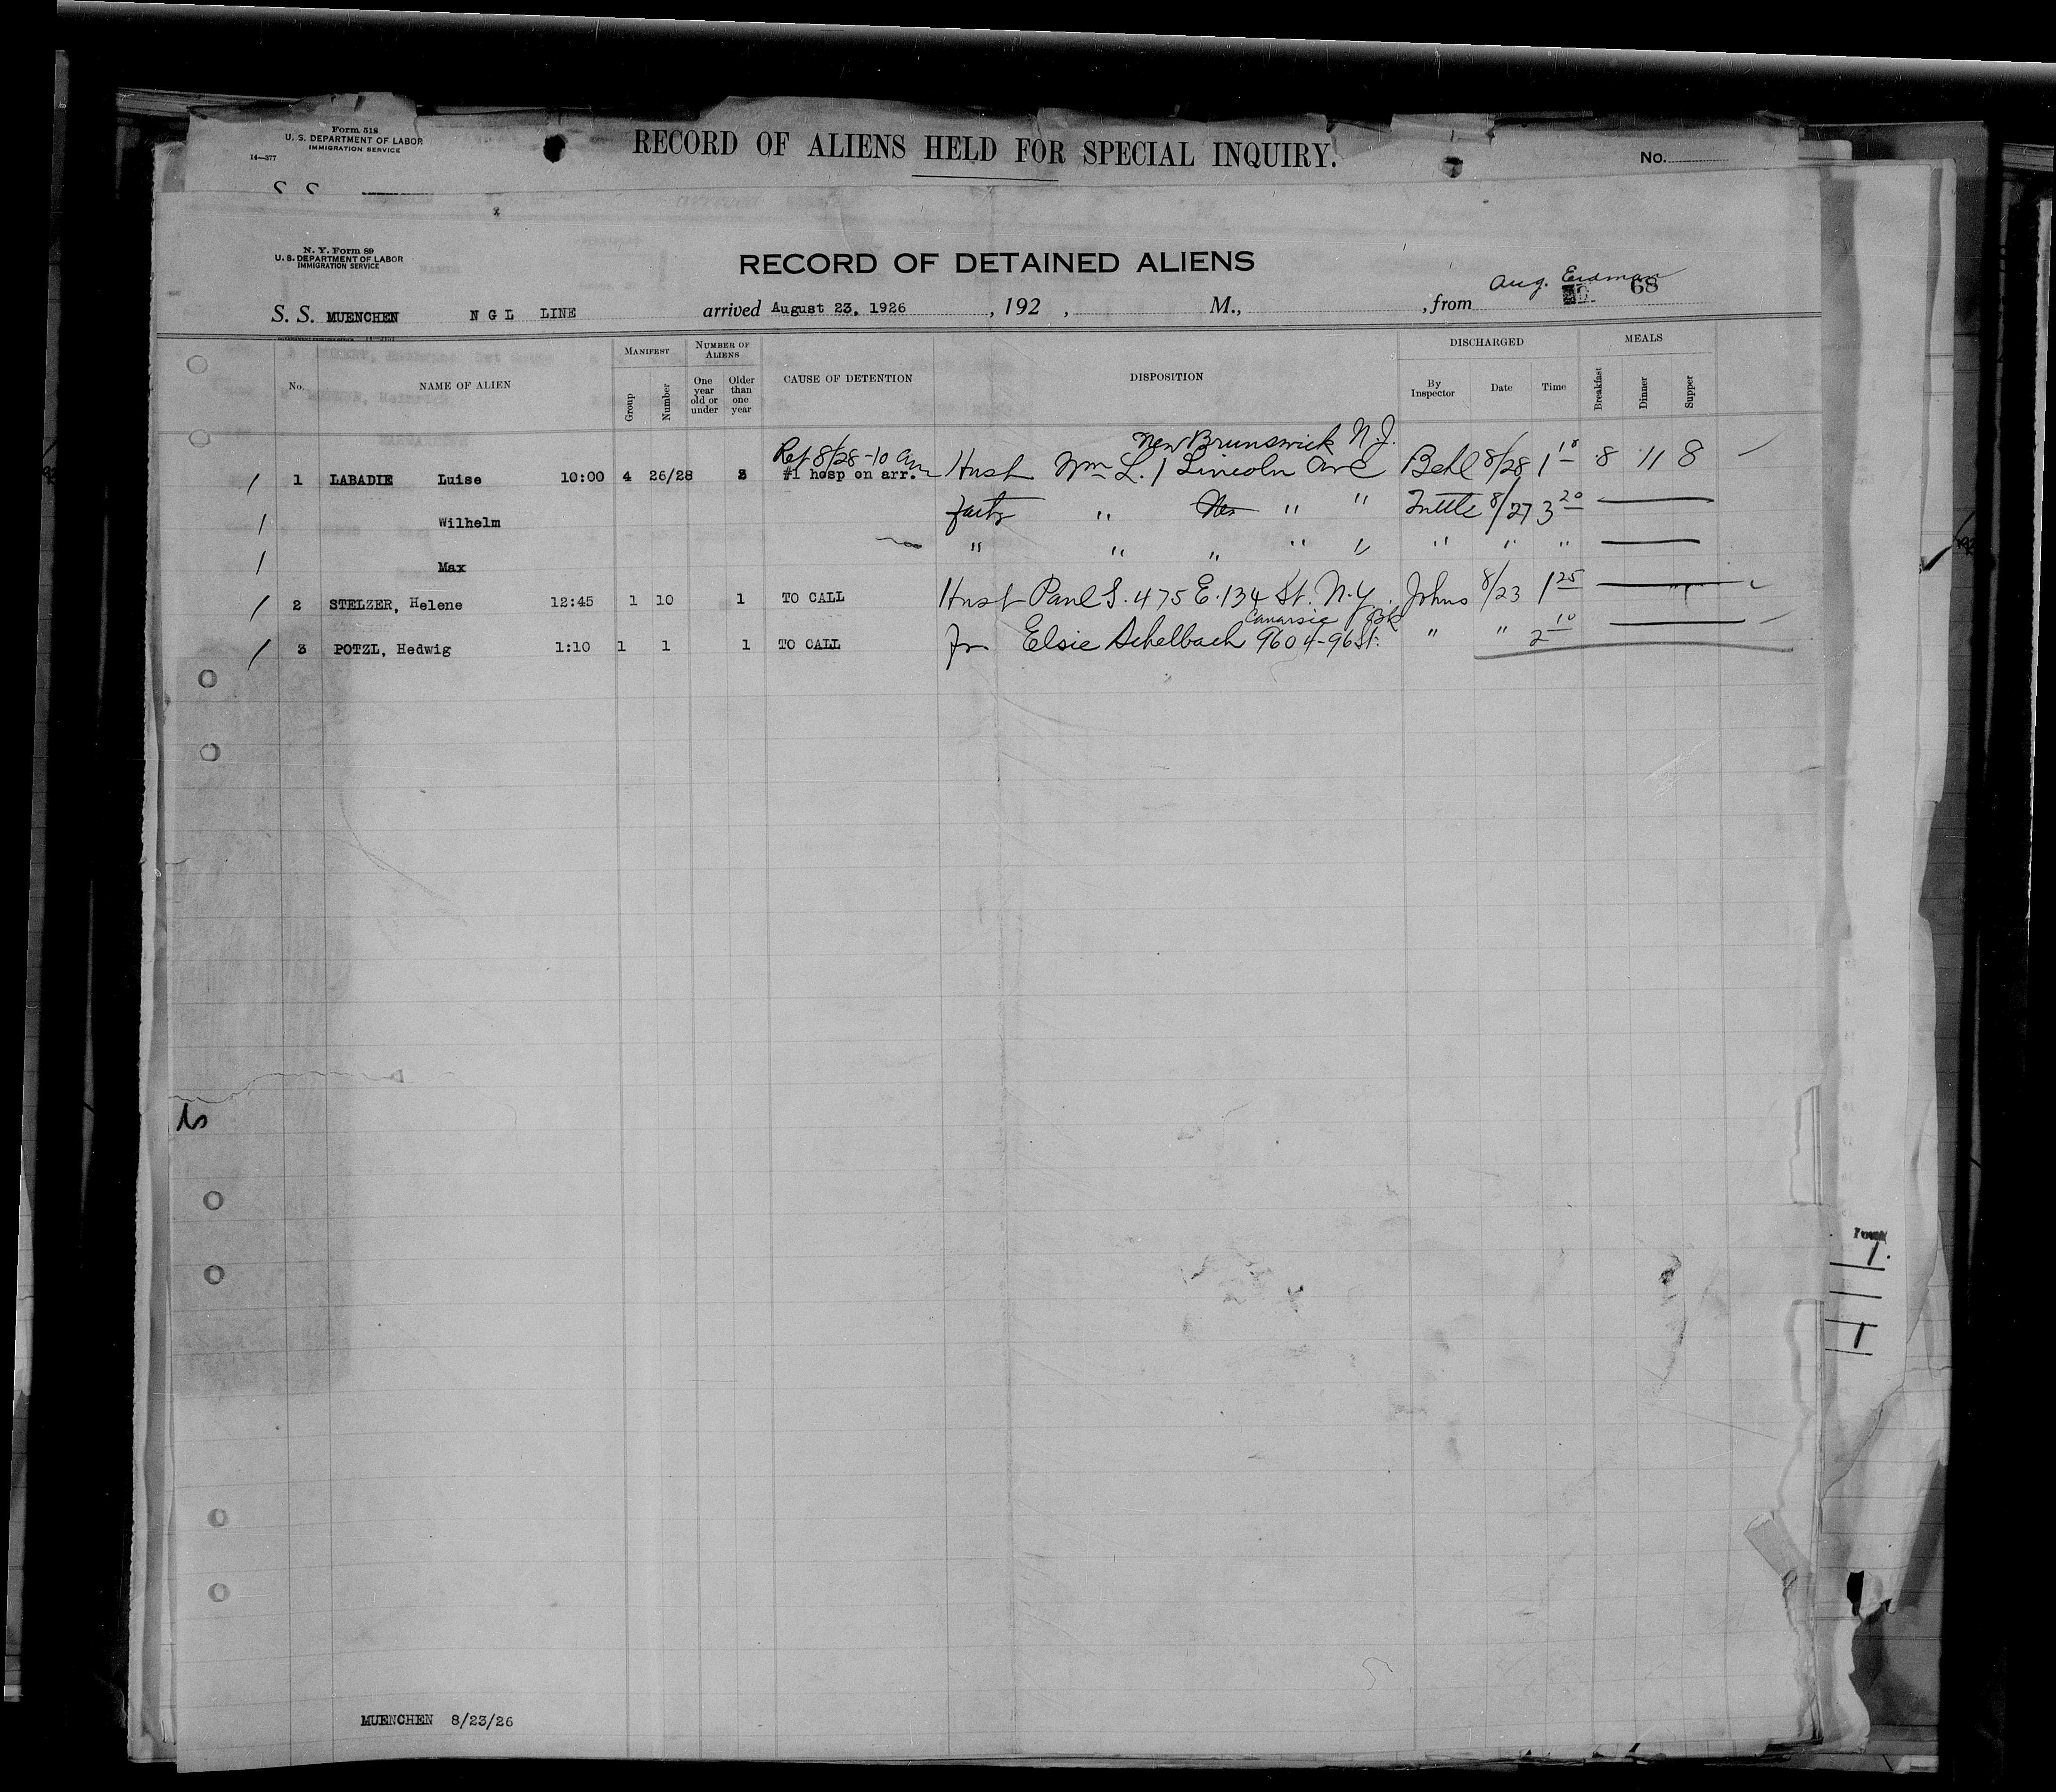 Form 518
U. S. DEPARTMENT OF LABOR
IMMIGRATION SERVICE
14—377
RECORD OF ALIENS HELD FOR SPECIAL INQUIRY.
No.
S S
N. Y. Form 89
U. S. DEPARTMENT OF LABOR
IMMIGRATION SERVICE
RECORD OF DETAINED ALIENS
Aug. Erdman
68
S. S. MUENCHEN N G L LINE arrived August 23, 1926, 192 , M., , from
No. NAME OF ALIEN MANIFEST Group Number NUMBER OF ALIENS One year old or under Older than one year CAUSE OF DETENTION DISPOSITION DISCHARGED By Inspector Date Time MEALS Breakfast Dinner Supper
Ret 8/28-10 am New Brunswick N.J.
/ 1 LABADIE Luise 10:00 4 26/28 3 #1 hosp on arr. Husb Wm L. 1 Lincoln Ave 8/28 1 10 8 11 8
/ Wilhelm " " " Tuttle 8/27 3 20
/ Max " " " " " " " "
/ 2 STELZER, Helene 12:45 1 10 1 TO CALL Husb Paul S. 475 E. 134 St. N.Y. Johns 8/23 1 25
Canarsie
/ 3 POTZL, Hedwig 1:10 1 1 1 TO CALL Fr Elsie Schelbach 9604-96 St. " " 2 10
MUENCHEN 8/23/26